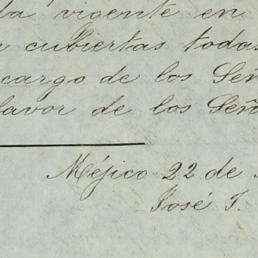 da vigente en
cubiertas todas
cargo de los Señ
favor de los Seño
Méjico 22 de
José T.